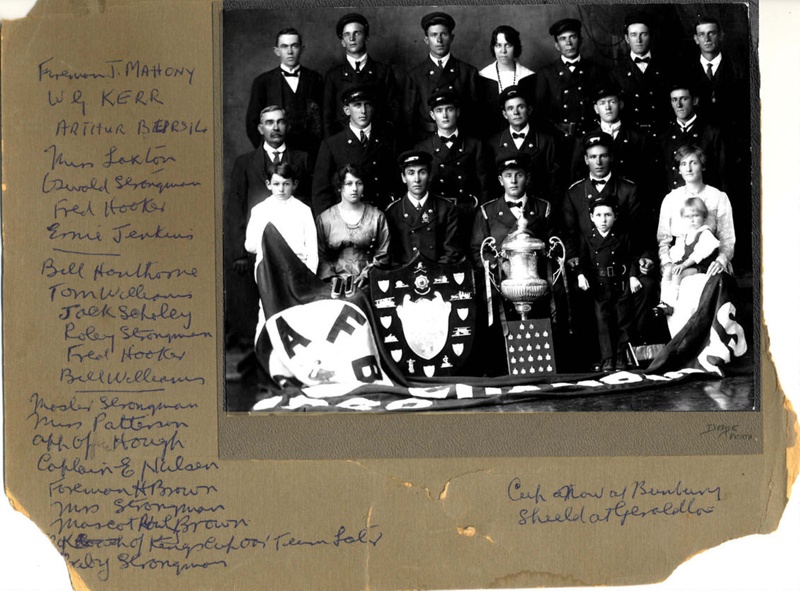 Foreman J. MAHONY
W G KERR
ARTHUR
Miss Laxton
Oswald Strongman
Fred Hooker
Ernie Jenkins
Bill Hawthorne
Tom Williams
Jack Scholey
Roley Strongman
Fred Hooker
Bill Williams
Master Strongman
Miss Patterson
Hough
Captain E Nielsen
Foreman H Brown
Mrs Strongman
Mascot Brown
of Kings Cup Team Later
Baby Strongman
AFB
NS
Cup now at Bunbury
Shield at Geraldton